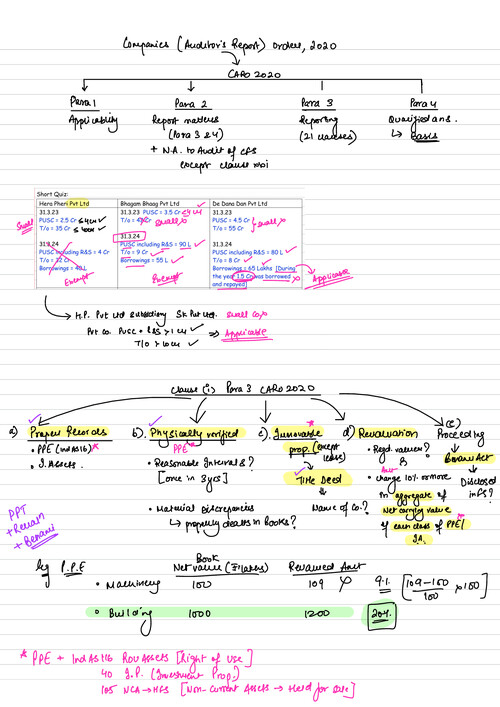 Companies (Auditor's Report) Orders, 2020
CARO 2020
Para 1
Applicability
Para 2
Report matters
(Para 3 & 4)
+ N.A. to Audit of CFS
except clause xxi
Para 3
Reporting
(21 clauses)
Para 4
Qualified ans.
↳ Basis
Short Quiz:
Hera Pheri Pvt Ltd
31.3.23
PUSC = 2.5 Cr ≤ 4 cr ✓
T/o = 35 Cr ≤ 40 cr ✓
Small
31.3.24
PUSC including R&S = 4 Cr
T/o = 12 Cr
Borrowings = 40 L
Exempt
Bhagam Bhaag Pvt Ltd
31.3.23 PUSC = 3.5 Cr ≤ 4 cr
T/o = 45 Cr small x
31.3.24
PUSC including R&S = 90 L ✓
T/o = 9 Cr ✓
Borrowings = 55 L ✓
Exempt
De Dana Dan Pvt Ltd
31.3.23
PUSC = 4.5 Cr
T/o = 55 Cr
small x
31.3.24
PUSC including R&S = 80 L ✓
T/o = 8 Cr ✓
Borrowings = 65 Lakhs [During
the year 1.5 Cr was borrowed
and repaid]
Applicable
→ H.P. Pvt Ltd subsidiary Sk Pvt Ltd. small co. x
Pvt Co. PUSC + R&S > 1 cr ✓ ⇒ Applicable
T/o > 10 cr ✓
Clause (i) Para 3 CARO 2020
a) Proper Records
• PPE (Ind AS 16)*
• I. Assets.
b) Physically verified
PPE*
• Reasonable Intervals?
[once in 3 yrs]
• Material Discrepancies
↳ properly dealt in Books?
c) Immovable*
prop. (except
lease)
Title Deed
Name of Co.?
d) Revaluation
• Regd. valuer?
&
Amt
• change 10% or more
in aggregate of
Net carrying value
of each class of PPE*/
I.A.
(e)
Proceeding
Benami Act
Disclosed
in FS?
PPT
+ Revan
+ Benami
Eg P.P.E
Book
Net value (₹ lakhs)
Revalued Amt
• Machinery 100 109 x 9% [109-100/100 x100]
• Building 1000 1200 20%
* PPE + Ind AS 116 ROU Assets [Right of use]
40 I.P. (Investment Prop.)
105 NCA → HFS [Non-Current Assets → Held for Sale]